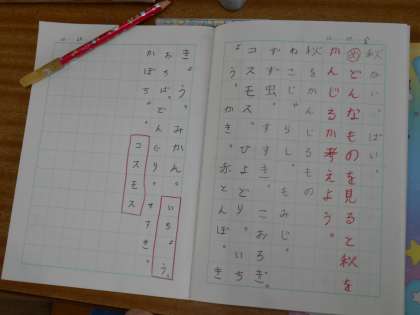 秋がいっぱい。
め どんなものを見ると秋を
かんじるか考えよう。
秋をかんじるもの
ねこじゃらし。もみじ。
すず虫。すすき。こおろぎ。
コスモス。ひよどり。いち
ょう。かき。赤とんぼ。き
きょう。みかん。 いちょう
おちば。どんぐり。すすき。
かぼちゃ。 コスモス